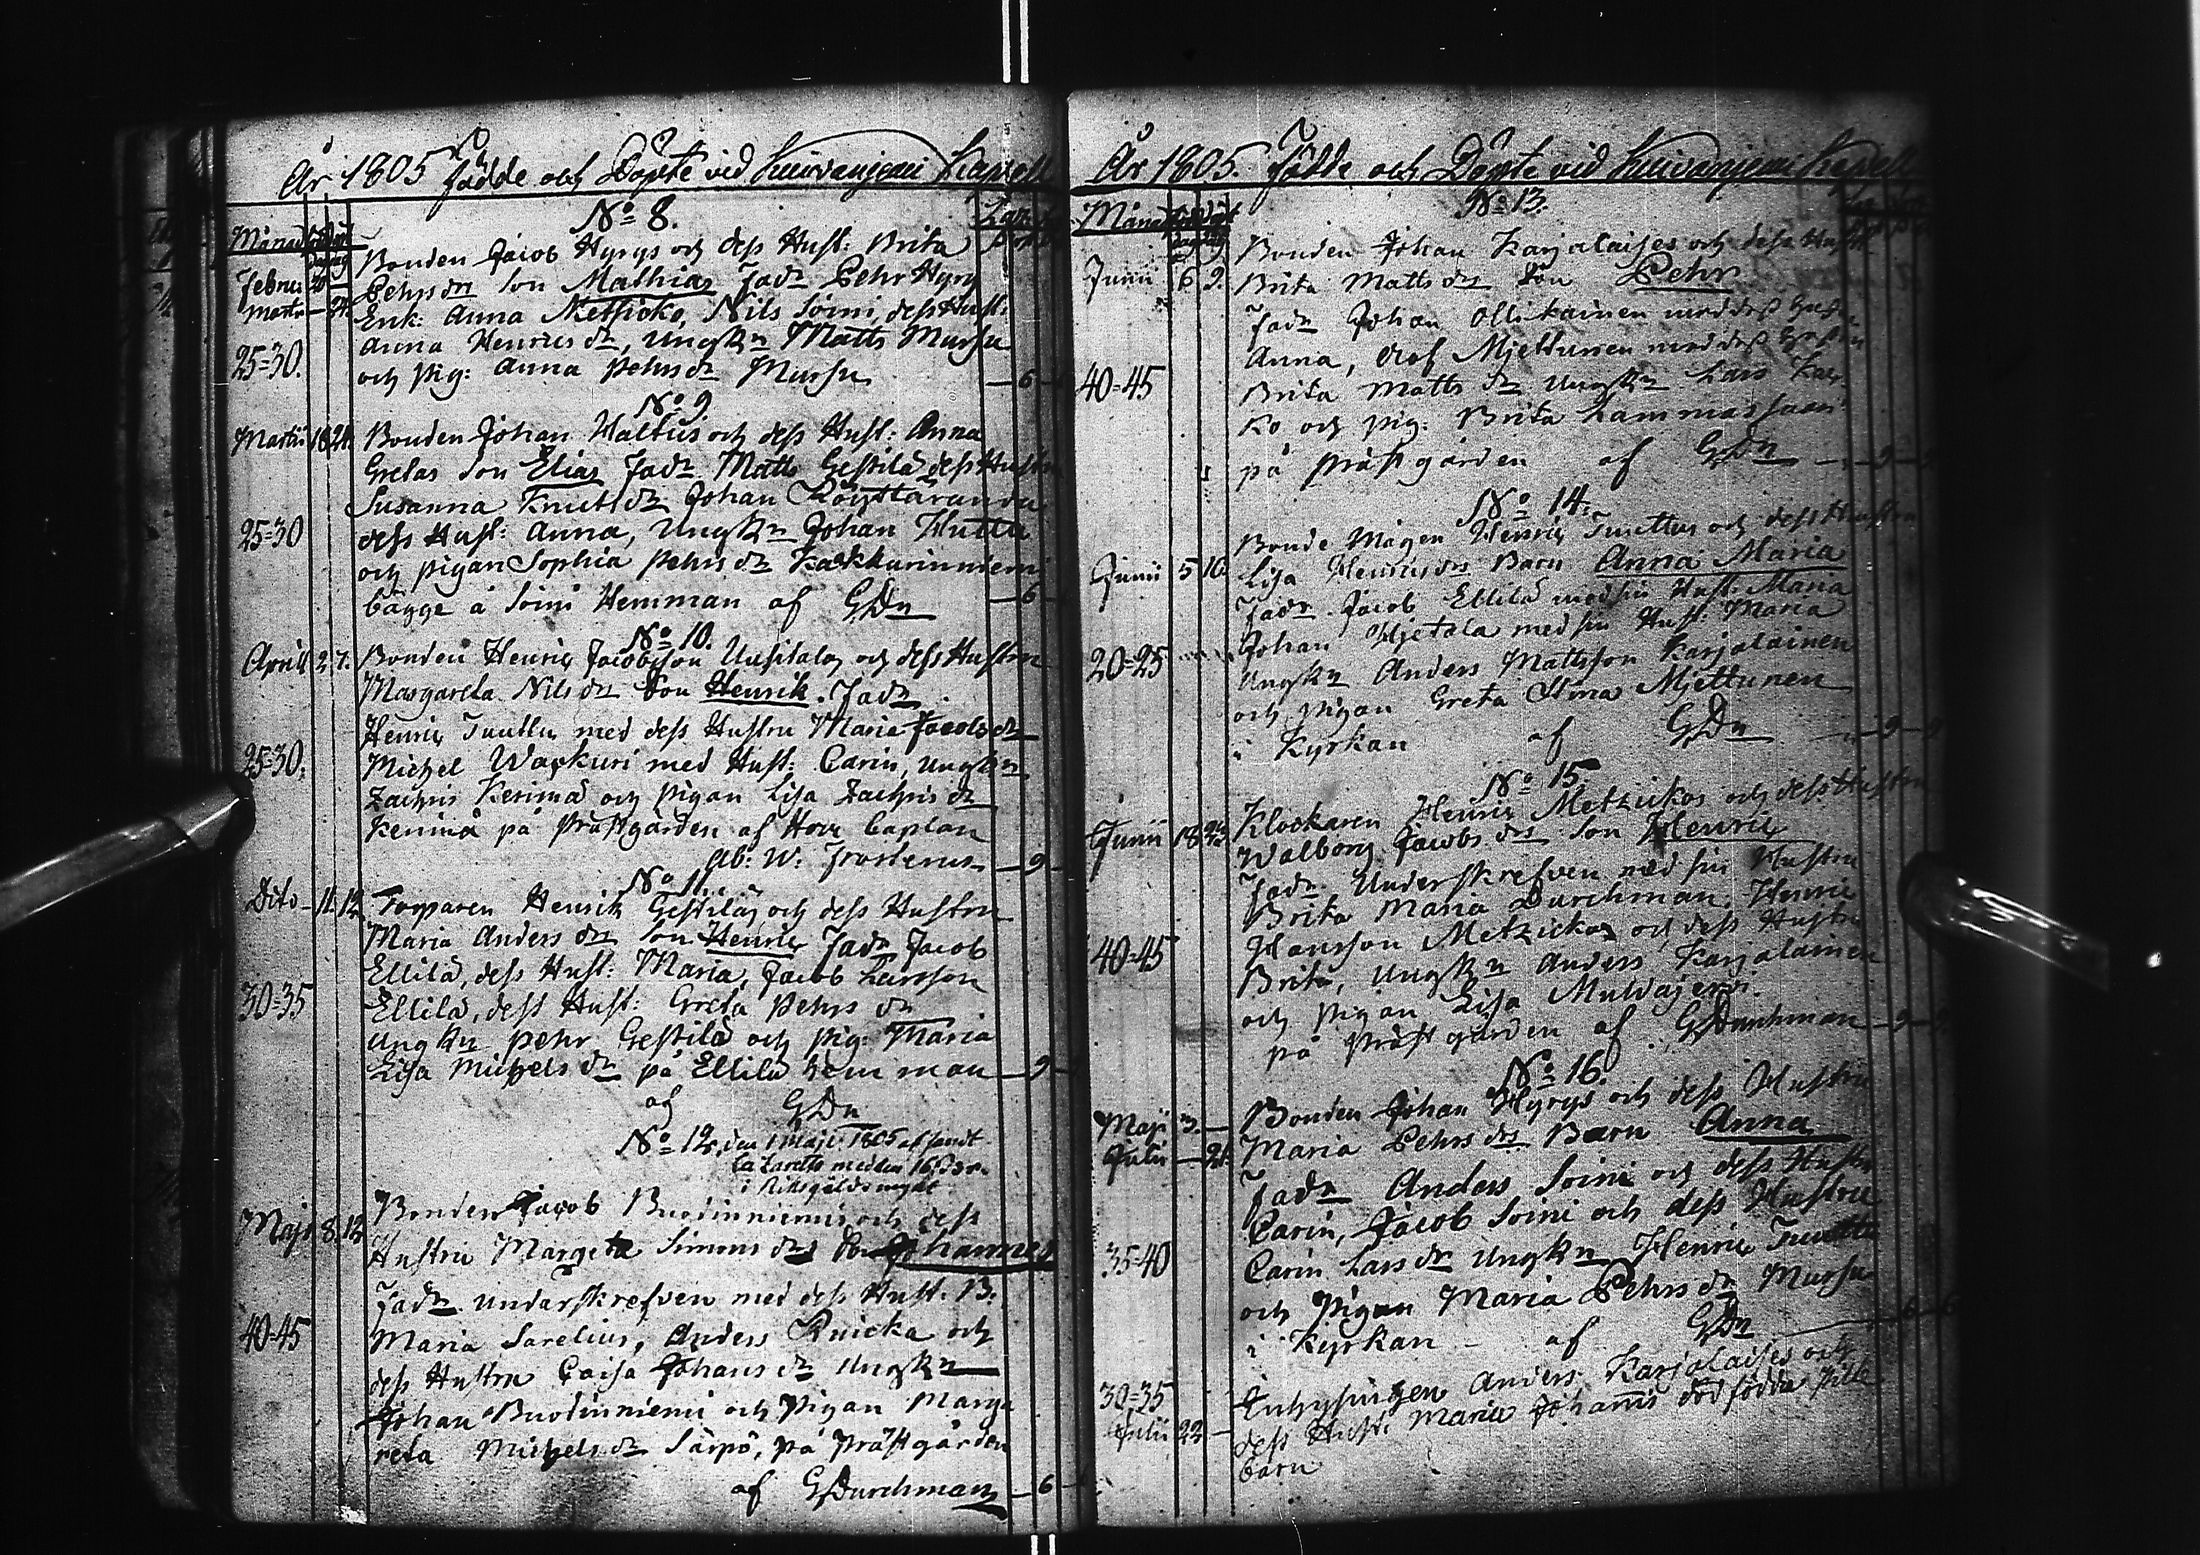 År 1805 födde och Döpte vid Kuivaniemi Kapell
Månad
No 8.
Febru. 26 —
Martii — 24.
Bonden Jacob Hyrys och dess Hust: Brita
Pehrs dr Son Mathias Fadr Pehr Hyry
Enk: Anna Metsicko, Nils Soini, dess Hust:
25=30.
Anna Henrics dr, Ungkn Matts Mursu
och pig: Anna Pehrs dr Mursu — 6 —
No 9.
Martii 18 24.
Bonden Johan Haltus och dess Hust: Anna
Gretas Son Elias Fadr Matts Gestilä dess Hustru
Susanna Knuts dr Johan
25=30
dess Hust: Anna, Ungkn Johan Hutta
och pigan Sophia Pehrs dr
bägge å Soini Hemman af GDn — 6 —
No 10.
April 2. 7.
Bonden Henric Jacobsson Uusitalos och dess Hustru
Margareta Nils dr Son Henrik. Fadr
Henric Tuuttu med dess Hustru Maria Jacobs dr
25=30.
Michel Waskuri med Hust: Carin, Ungkn
Zachris Kerimä och pigan Lisa Zachris dr
Kerimä på Prästgården af Herr Caplan
Ab: W: Frosterus — 9 —
No 11.
Dito — 11. 12.
Torparen Henrik Gestiläs och dess Hustru
Maria Anders dr Son Henric Fadr Jacob
Ellilä, dess Hust: Maria, Jacob Larsson
30=35
Ellilä, dess Hust: Greta Pehrs dr
Ungkn Pehr Gestilä och pig: Maria
Lisa Michels dr på Ellilä hemman — 9 —
af GDn
No 12, den 1 Maji 1805 afsandt
Lazaretts meden 16
i Riksgälds mynt
Maji 8. 12
Bonden Jacob Buodinniemis och dess
Hustru Margeta Simons dr Son Johannes
Fadr underskrefven med dess Hust. B.
40=45
Maria Sarelius, Anders Knicka och
dess Hustru Caisa Johans dr Ungkn
Johan Buodinniemi och Pigan Marga
reta Michels dr Särpä, på Prästgården
af GDurchman — 6 —
År 1805. Födde och Döpte vid Kuivaniemi Kapell
Månad
No 13.
Junii 6 9.
Bonden Johan Karjalaises och dess Hustr.
Brita Matts dr Son Pehr
Fadr Johan Ollikainen med dess Hustru
Anna, Olof Mjettunen med dess Hustru
40=45
Brita Matts dr Ungkn Lars
ko och pig: Brita Lammassaari
på Prästgården af GDn — 9 — 9
No 14.
Junii 5 16.
Bonde Mågen Henric Tuuttus och dess Hustru
Lisa Henrics drs Barn Anna Maria
Fadr Jacob Ellilä med sin Hust: Maria
Johan Hjetala med sin Hust: Maria
20=25
Ungkn Anders Mattsson Karjalainen
och pigan Greta Stina Mjettunen
i Kyrkan af GDn — 9 — 9
No 15.
Junii 18
Klockaren Henric Metzickos och dess Hustru
Walborg Jacobs drs Son Henric
Fadr Underskrefven med sin Hustru
Brita Maria Durchman, Henric
40=45
Hansson Metzicko och dess Hustru
Brita, Ungkn Anders Karjalainen
och pigan Lisa Mulvajervi
på Prästgården af GDurchman — 9 — 9.
No 16.
Maji 3. —
Julii — 21.
Bonden Johan Hyrys och dess Hustru
Maria Pehrs drs Barn Anna
Fadr Anders Soini och dess Hustr
Carin, Jacob Soini och dess Hustru
35=40
Carin Lars dr Ungkn Henric Tuuttu
och Pigan Maria Pehrs dr Mursu
i Kyrkan — af GDn — 6 — 6
30=35
Inhysingen Anders Karjalaises och
Julii 22 —
dess Hust: Maria Johans död födda Pille
barn